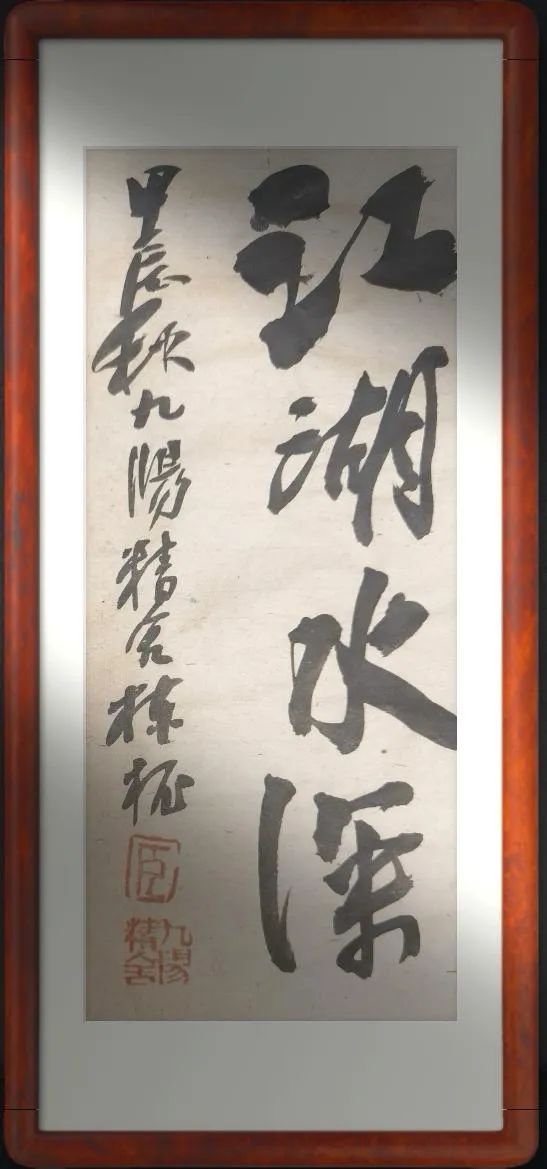 江湖水深
甲辰秋九陽精舍
九陽
精舍